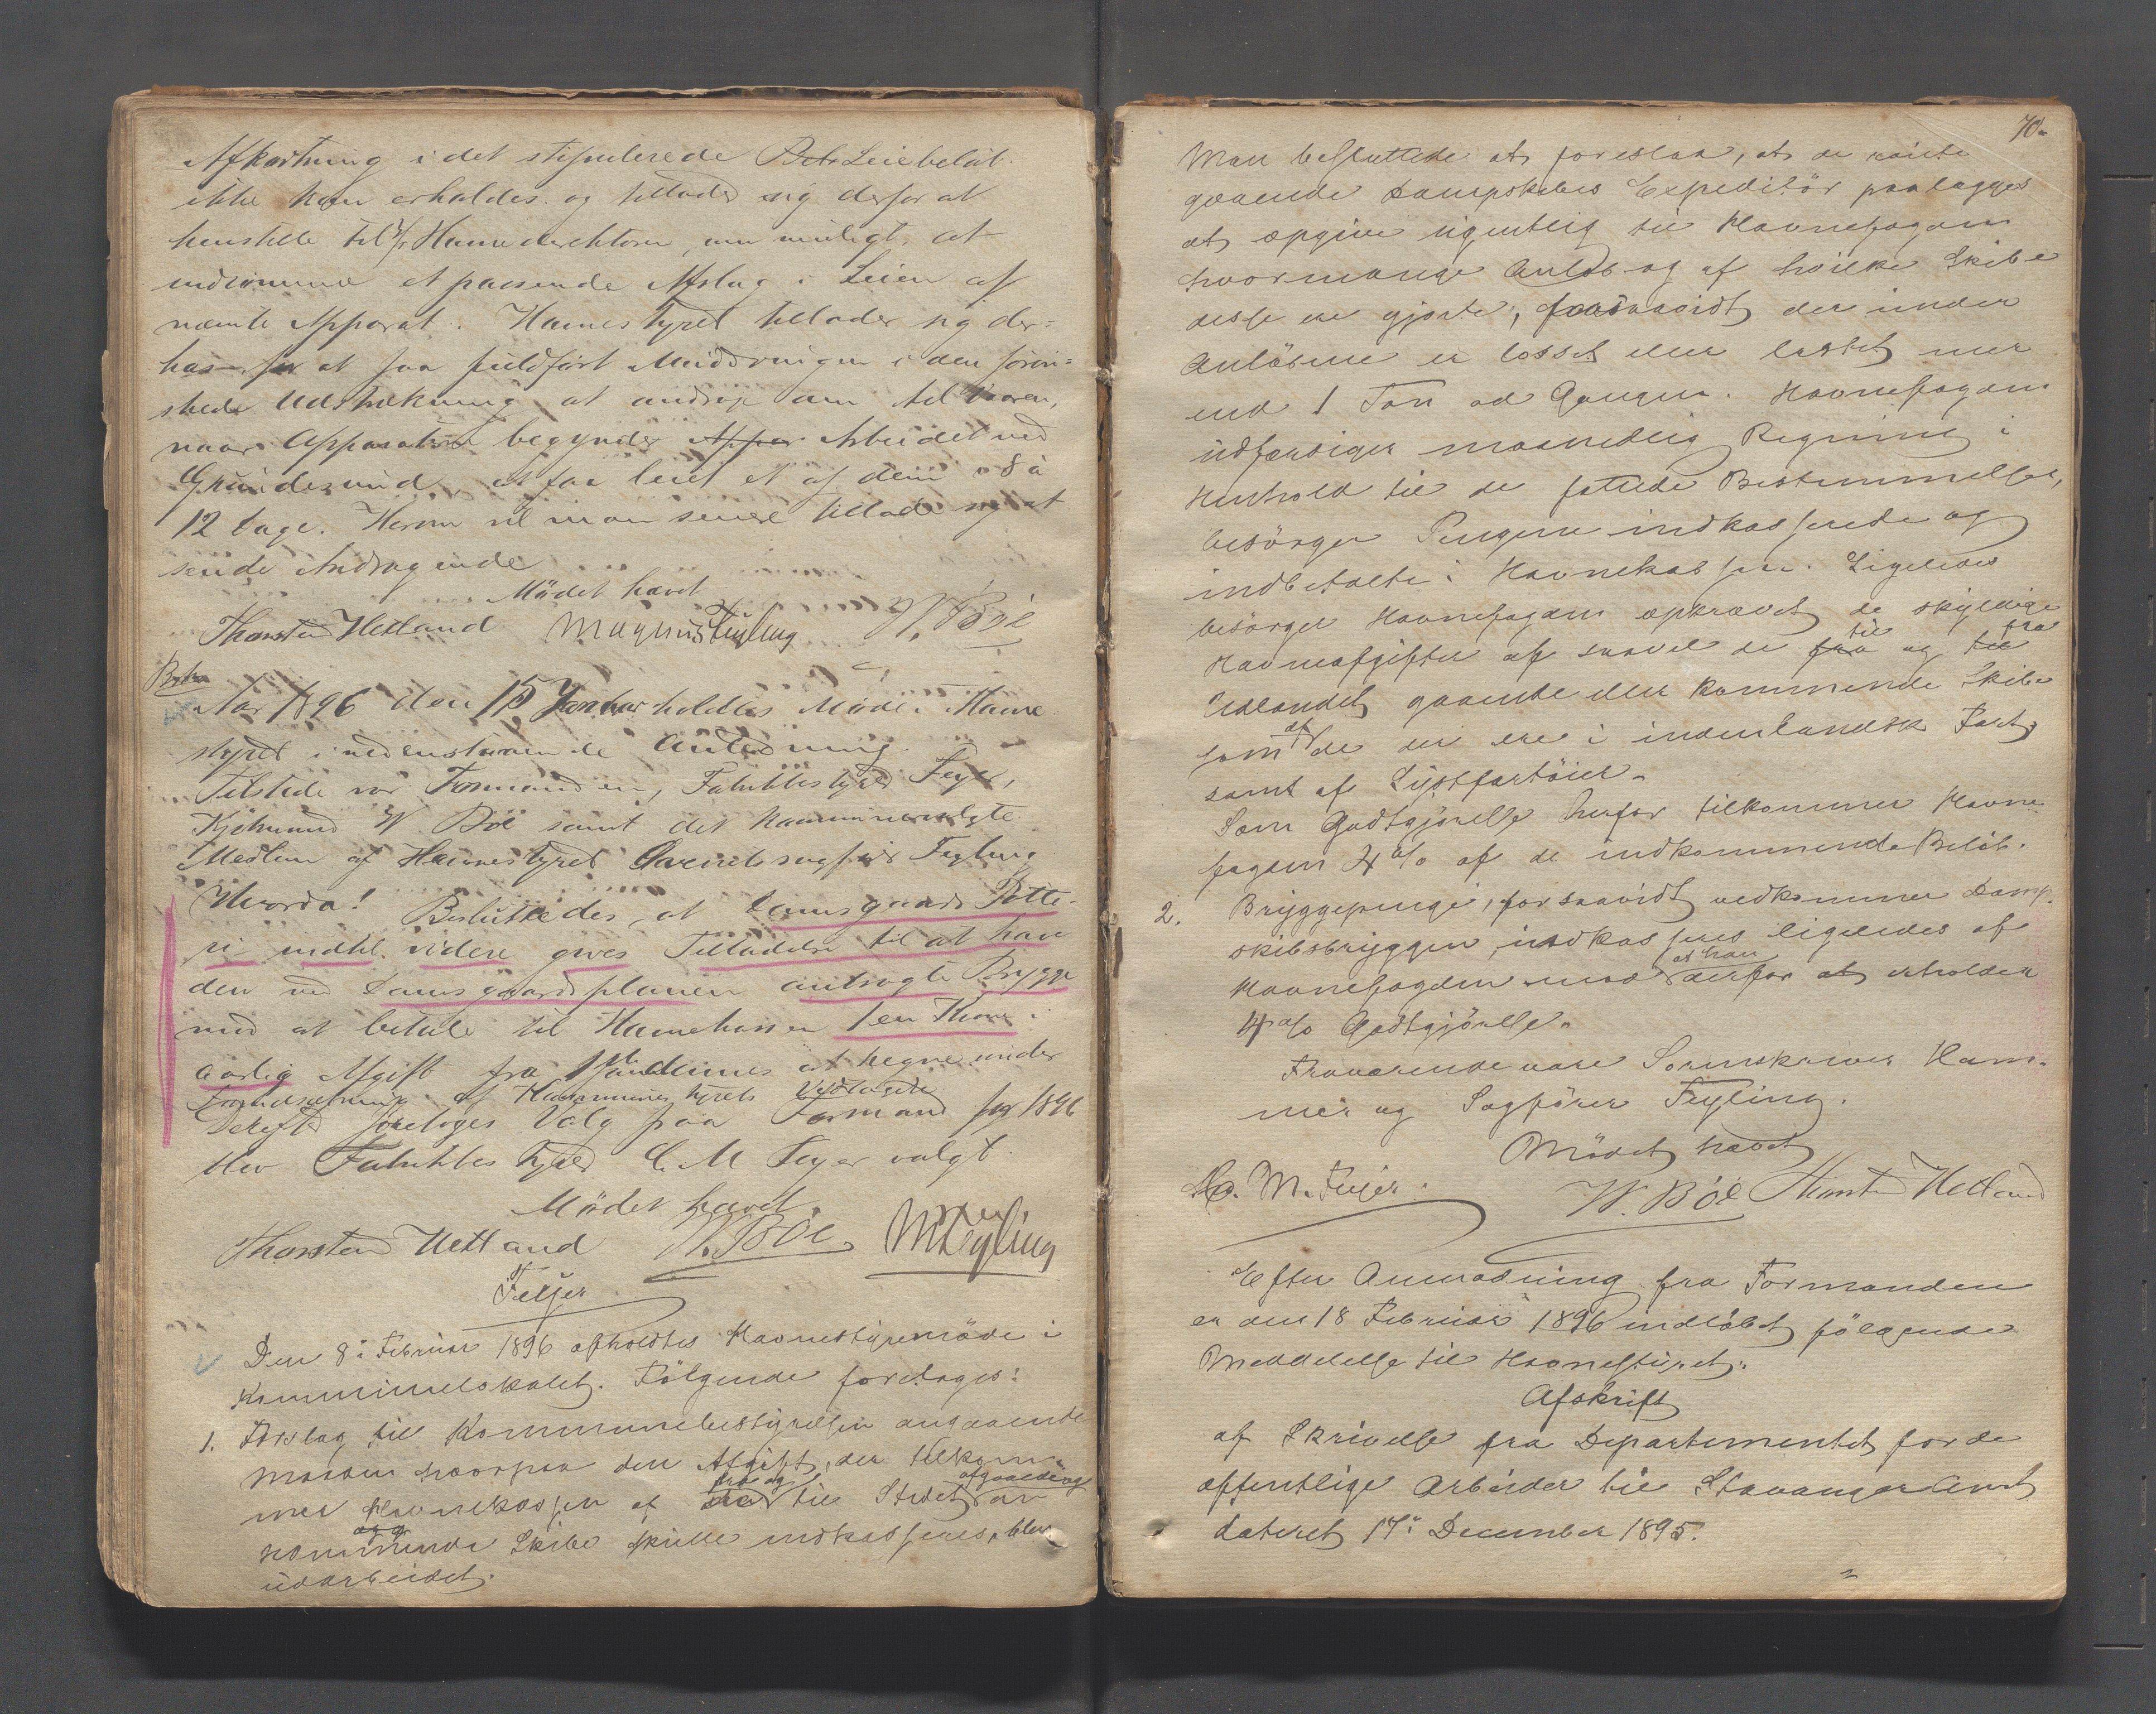 Afkortning i det stipulerede Leiebeløb
ikke kan erholdes og tillader sig derfor at
henstille til Havnedirektøren, om muligt, at
indrømme et passende Afslag i Leien af
nævnte Apparat. Havnestyret tillader sig der=
hos for at faa fuldført Muddringen i den føren=
stede Udstrækning at andrage om til Vaaren,
naar Apparatet begynder Appar Arbeidet ved
Grundesund, at faa leiet et af dem i 8 à
12 Dage. Herom vil man senere tillade sig at
sende Andragende
Mödet hævet
Thorsten Hetland Magnus Feyling W. Böe
Aar 1896 den 15 Januar holdtes Möde i Havne
styret i nedenstaaende Anledning.
Tilstede var Formanden, Fabrikbestyrer Feyer,
Kjøbmand W. Böe samt det kommunevalgte
Medlem af Havnestyret Overretssagfører Feyling
Hvorda! Besluttedes, at Damsgaards Potte-
ri indtil videre gives Tilladelse til at have
den ved Damsgaardsplanen ansøgte Brygge
mod at betale til Havnekassen 1 en Krone i
aarlig Afgift fra 1ste at regne under
Forudsætning af Kommunestyrets Vedtagelse
Derefter foretoges Valg paa Formand for 1896
blev Fabrikbestyrer C. M Feyer valgt.
Mödet hævet.
Thorsten Hetland W. Böe M Feyling
Feyer
Den 8: Februar 1896 afholdtes Havnestyremöde i
Kommunelokalet. Fölgende foretoges:
1. Forslag til Kommunebestyrelsen angaaende
Maaden hvorpaa den Afgift, der tilkom-
fra og afgaaende og
mer Havnekassen af de til Stedet an
kommende Skibe skulle indkasseres, blev
udarbeidet.
70.
Man besluttede at foreslaa, at de route
gaaende Dampskibes Expeditör paalægges
at opgive ugentlig til Havnefogden
hvormange Anløb og af hvilke Skibe
disse ere gjorte, forsaavidt der under
Anlöbene er losset eller lastet mer
end 1 Ton ad Gangen. Havnefogden
udfærdiger maanedlig Regning i
Henhold til de fattede Bestemmelser,
besörger Pengene indkasserede og
indbetalte i Havnekassen. Ligeledes
besörger Havnefogden opkrævet de skyldige
til fra
Havneafgifter af saavel de fra og til
Udlandet gaaende eller kommende Skibe
af
som de der ere i indenlandsk Fart,
samt af Lystfartöier.
Som Godtgjörelse herfor tilkommer Havne
fogden 4% af de indkommende Belöb.
2. Bryggepenge, forsaavidt vedkommer Damp.
skibsbryggen, indkasseres ligeledes af
at han
Havnefogden mod derfor at erholder
4% Godtgjörelse.
Fraværende vare Sorenskriver Ham-
mer og Sagförer Feyling.
Mödet hævet
C. M. Feyer. W. Böe Thorsten Hetland
Efter Anmodning fra Formanden
er den 18 Februar 1896 indlöbet fölgende
Meddelelse til Havnestyret:
Afskrift
af Skrivelse fra Departementet for de
offentlige Arbeider til Stavanger Amt
dateret 17: December 1895.